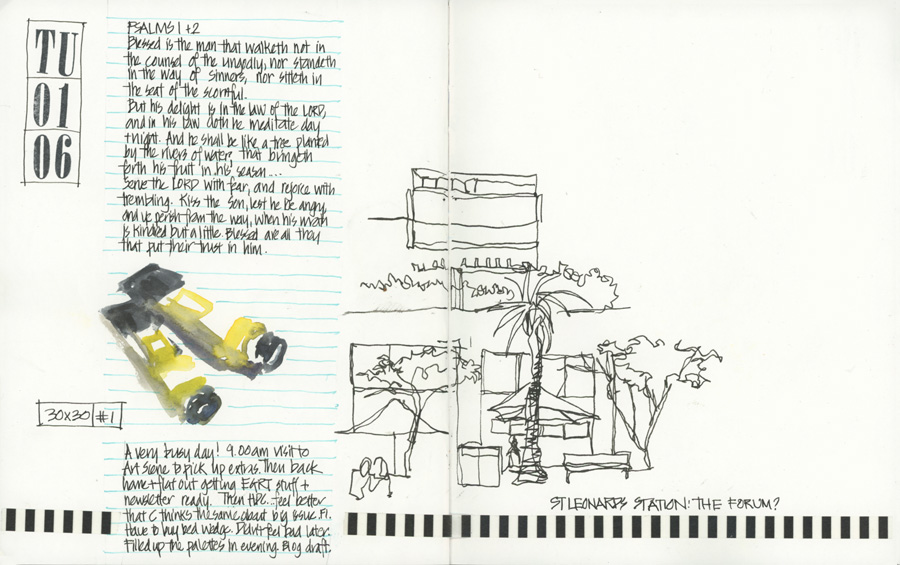 TU
01
06
PSALMS 1 + 2
Blessed is the man that walketh not in
the counsel of the ungodly, nor standeth
in the way of sinners, nor sitteth in
the seat of the scornful.
But his delight is in the law of the LORD,
and in his law doth he meditate day
+ night. And he shall be like a tree planted
by the rivers of water, that bringeth
forth his fruit in his season ...
Serve the LORD with fear, and rejoice with
trembling. Kiss the Son, lest he be angry,
and ye perish from the way, when his wrath
is kindled but a little. Blessed are all they
that put their trust in him.
30x30 #1
A very busy day! 9.00am visit to
Art Scene to pick up extras. Then back
home + flat out getting stuff +
newsletter ready. Then feel better
that C thinks the same about big issue.
Have to buy bed wedge. Didn't feel bad later.
Filled up the palettes in evening. Blog draft.
ST LEONARDS STATION: THE FORUM?